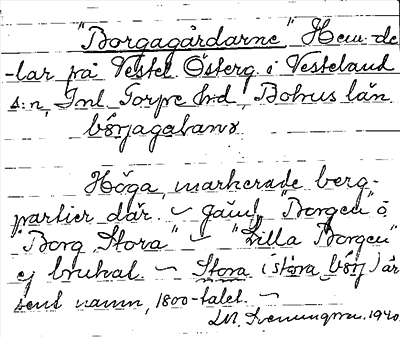 "Borgagårdarne" Hem.de-
-lar på Vestel Österg. i Vesteland
s:n, Inl. Torpe hrd, Bohus län
börjagaḷanɤ
Höga, markerade berg-
partier där. ~ Jämf. "Borgen" o
"Borg Stora" ~ "Lilla Borgen"
ej brukat. ~ Stora (stora börj) är
sent namn, 1800-talet. ~
1940